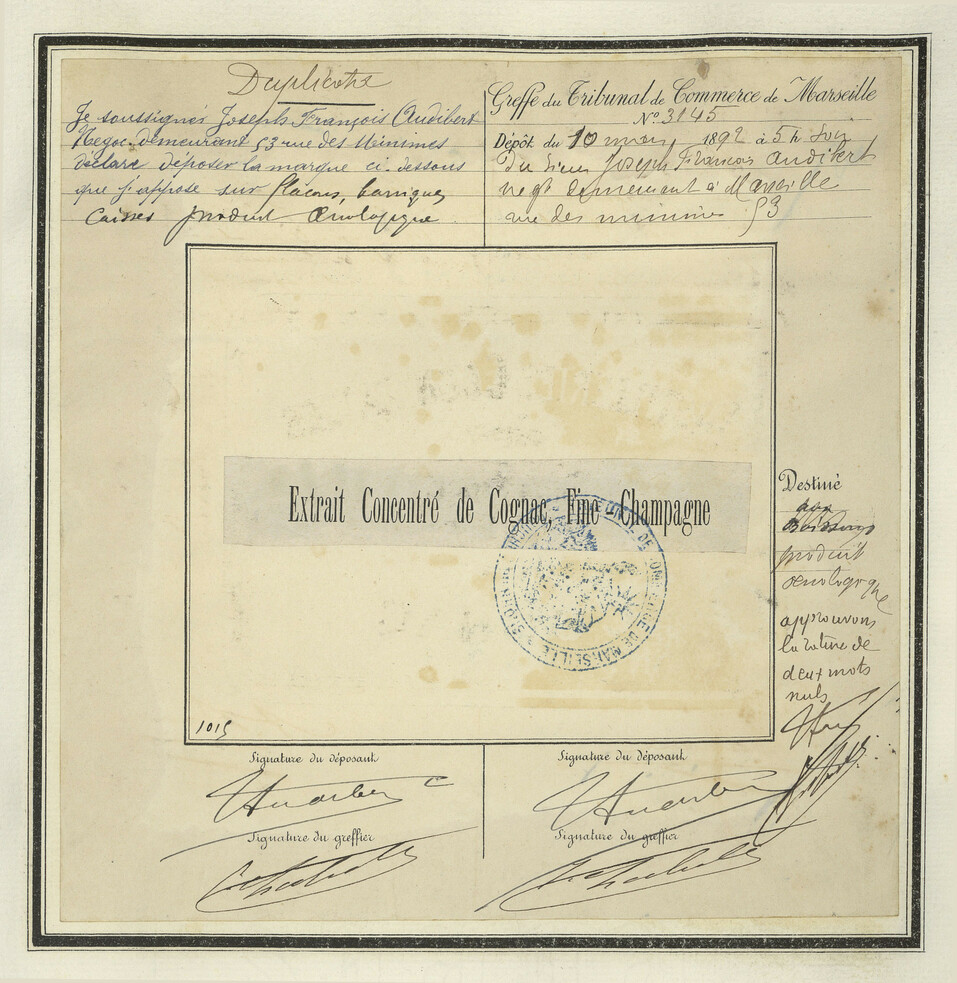 Duplicata
Je soussigné Joseph François Audibert
Négoc. demeurant 53 rue des Minimes
déclare déposer la marque ci-dessous
que j'appose sur flacons, barriques
caisses produit Œnologique
Greffe du Tribunal de Commerce de Marseille
N° 3145
Dépôt du 10 mars 1892 à 5 h soir
du sieur Joseph Francois Audibert
negt demeurant à Marseille
rue des minimes 53
Extrait Concentré de Cognac, Fine Champagne
DE MARSEILLE
1015
Destiné
aux
produit
œnologique
approuvons
la rature de
deux mots
nuls
Signature du déposant
Signature du déposant
Signature du greffier
Signature du greffier